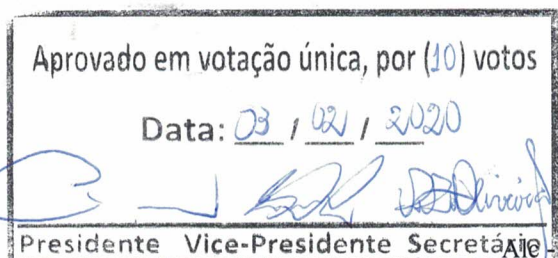 Aprovado em votação única, por (10) votos
Data: 03 / 02 / 2020
Presidente Vice-Presidente Secretário